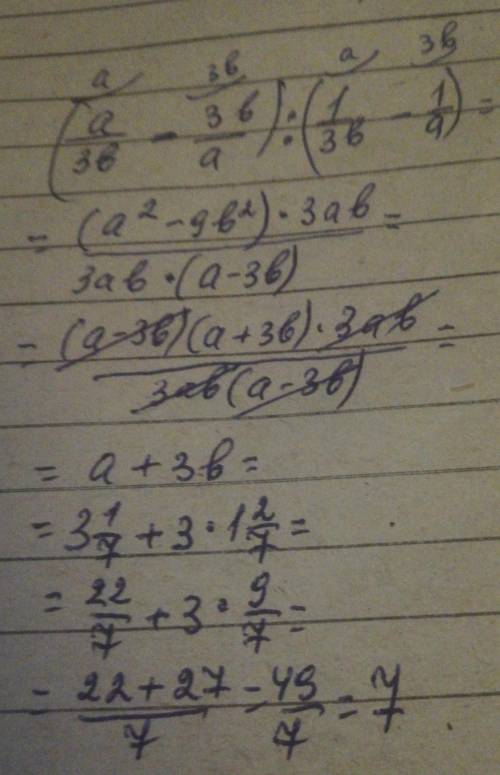 a 3b a 3b
(a/3b - 3b/a) : (1/3b - 1/a) =
= (a² - 9b²) · 3ab / 3ab · (a - 3b) =
= (a - 3b)(a + 3b) · 3ab / 3ab (a - 3b) =
= a + 3b =
= 3 1/7 + 3 · 1 2/7 =
= 22/7 + 3 · 9/7 =
= 22 + 27 / 7 = 49/7 = 7